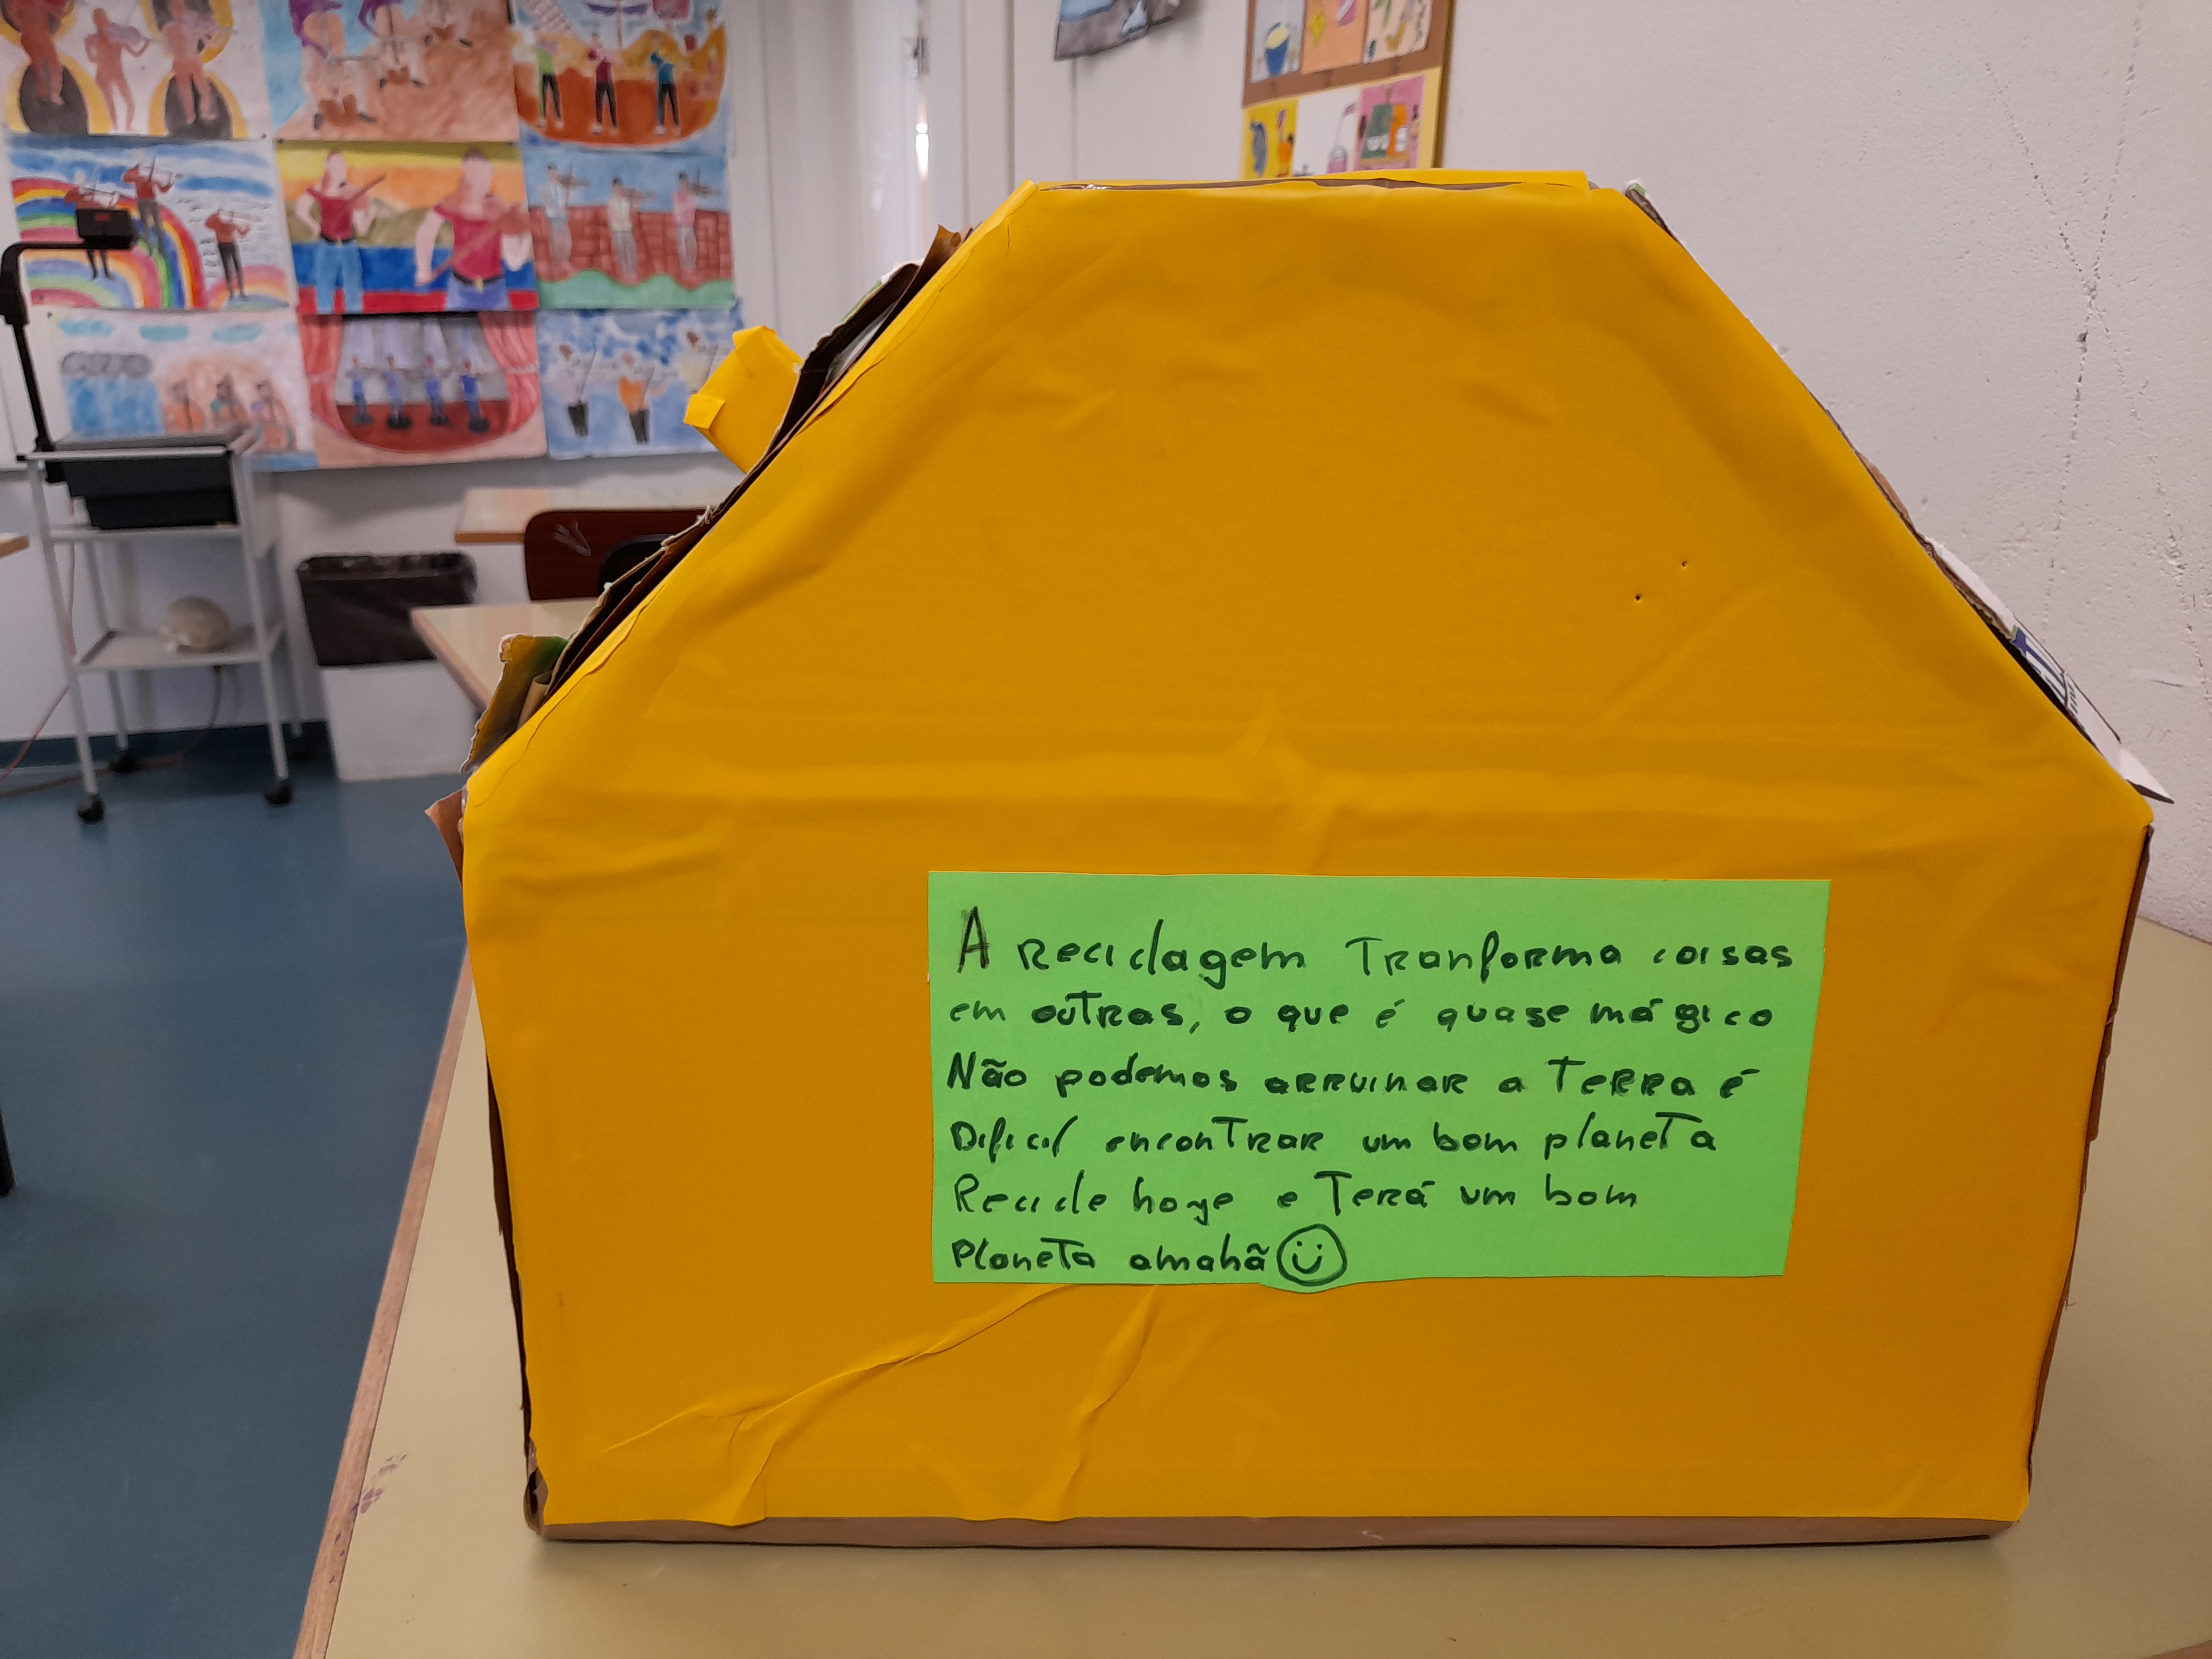 A Reciclagem Tranforma coisas
em outras, o que é quase mágico
Não podemos arruinar a Terra é
Dificil encontrar um bom planeta
Recicle hoje e Terá um bom
Planeta amahã